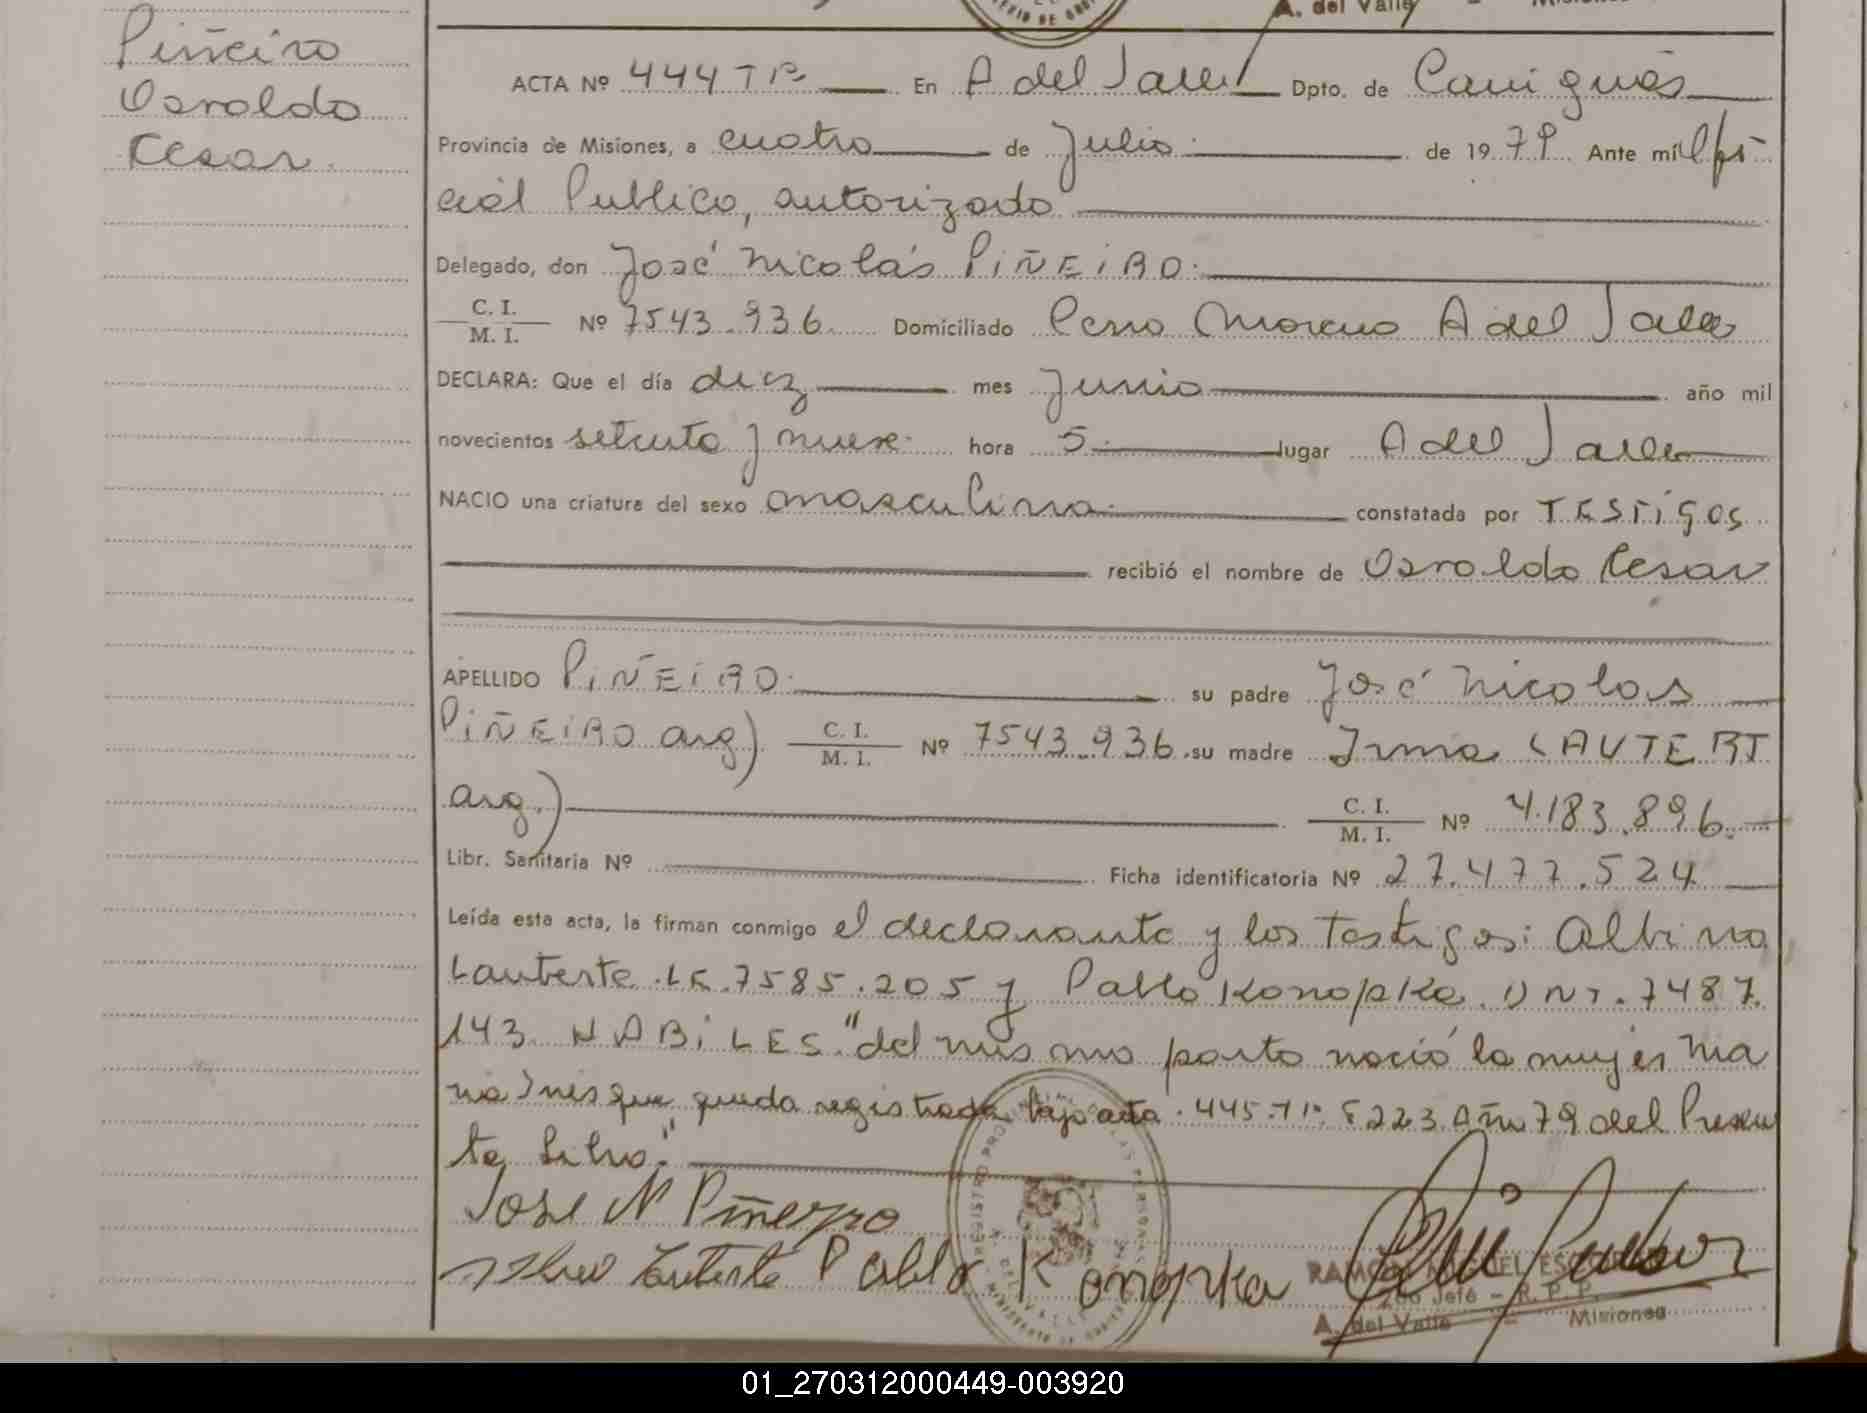 Piñeiro
Osvaldo
Cesar.
A. del Valle - Misiones
ACTA Nº 444 TP En A del Valle Dpto. de Cainguás
Provincia de Misiones, a cuatro de Julio. de 1979. Ante mí Ofi
cial Publico, autorizado
Delegado, don José Nicolás PIÑEIRO.
C. I.
M. I. Nº 7543.936 Domiciliado Moreno A del Valle
DECLARA: Que el día diez mes Junio año mil
novecientos setenta y nueve. hora 5. lugar A del Valle
NACIO una criatura del sexo masculino. constatada por TESTIGOS
recibió el nombre de Osvaldo Cesar
APELLIDO PIÑEIRO. su padre José Nicolas
PIÑEIRO arg) C. I.
M. I. Nº 7543.936 su madre Irma LAUTERT
arg.) C. I.
M. I. Nº 4.183.896.
Libr. Sanitaria Nº Ficha identificatoria Nº 27.477.524
Leída esta acta, la firman conmigo el declarante y los Testigos: Albino
Lauterte. LE. 7585.205 y Pablo Konopka. DNI. 7487.
143. HABILES. "del mismo parto nació la mujer Ma
ria Ines que queda registrada bajo acta. 445. TP. F 223 Año 79 del Presen
te Libro."
Jose N Piñeyro
Lauterte Pablo Konopka
RAMON MIGUEL
2do Jefe - R. P. P.
A. del Valle - Misiones
01_270312000449-003920